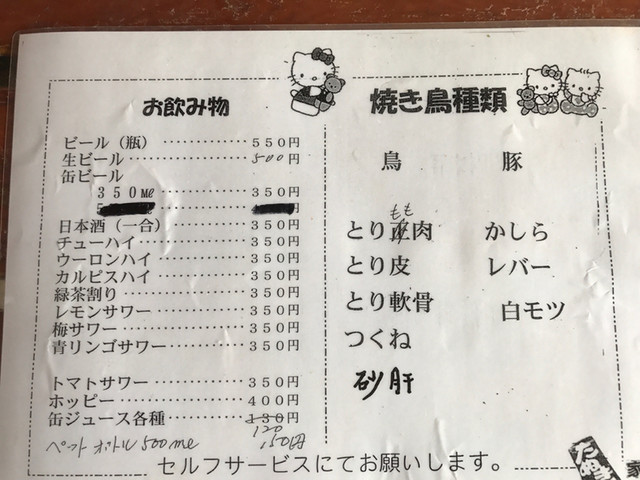 お飲み物
ビール（瓶）・・・・・・・・・・・・５５０円
生ビール・・・・・・・・・・・・・・500円
缶ビール
３５０㎖・・・・・・・・・・・・３５０円
日本酒（一合）・・・・・・・・・・・３５０円
チューハイ・・・・・・・・・・・・・３５０円
ウーロンハイ・・・・・・・・・・・・３５０円
カルピスハイ・・・・・・・・・・・・３５０円
緑茶割り・・・・・・・・・・・・・・３５０円
レモンサワー・・・・・・・・・・・・３５０円
梅サワー・・・・・・・・・・・・・・３５０円
青リンゴサワー・・・・・・・・・・・３５０円
トマトサワー・・・・・・・・・・・・３５０円
ホッピー・・・・・・・・・・・・・・４００円
缶ジュース各種・・・・・・・・・・・１３０円
120
ペットボトル500ml 150円
焼き鳥種類
鳥
とりもも肉
とり皮
とり軟骨
つくね
砂肝
豚
かしら
レバー
白モツ
セルフサービスにてお願いします。
たぬき
家